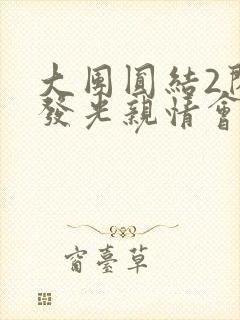 大團圓結2
發光親情會
窗臺草